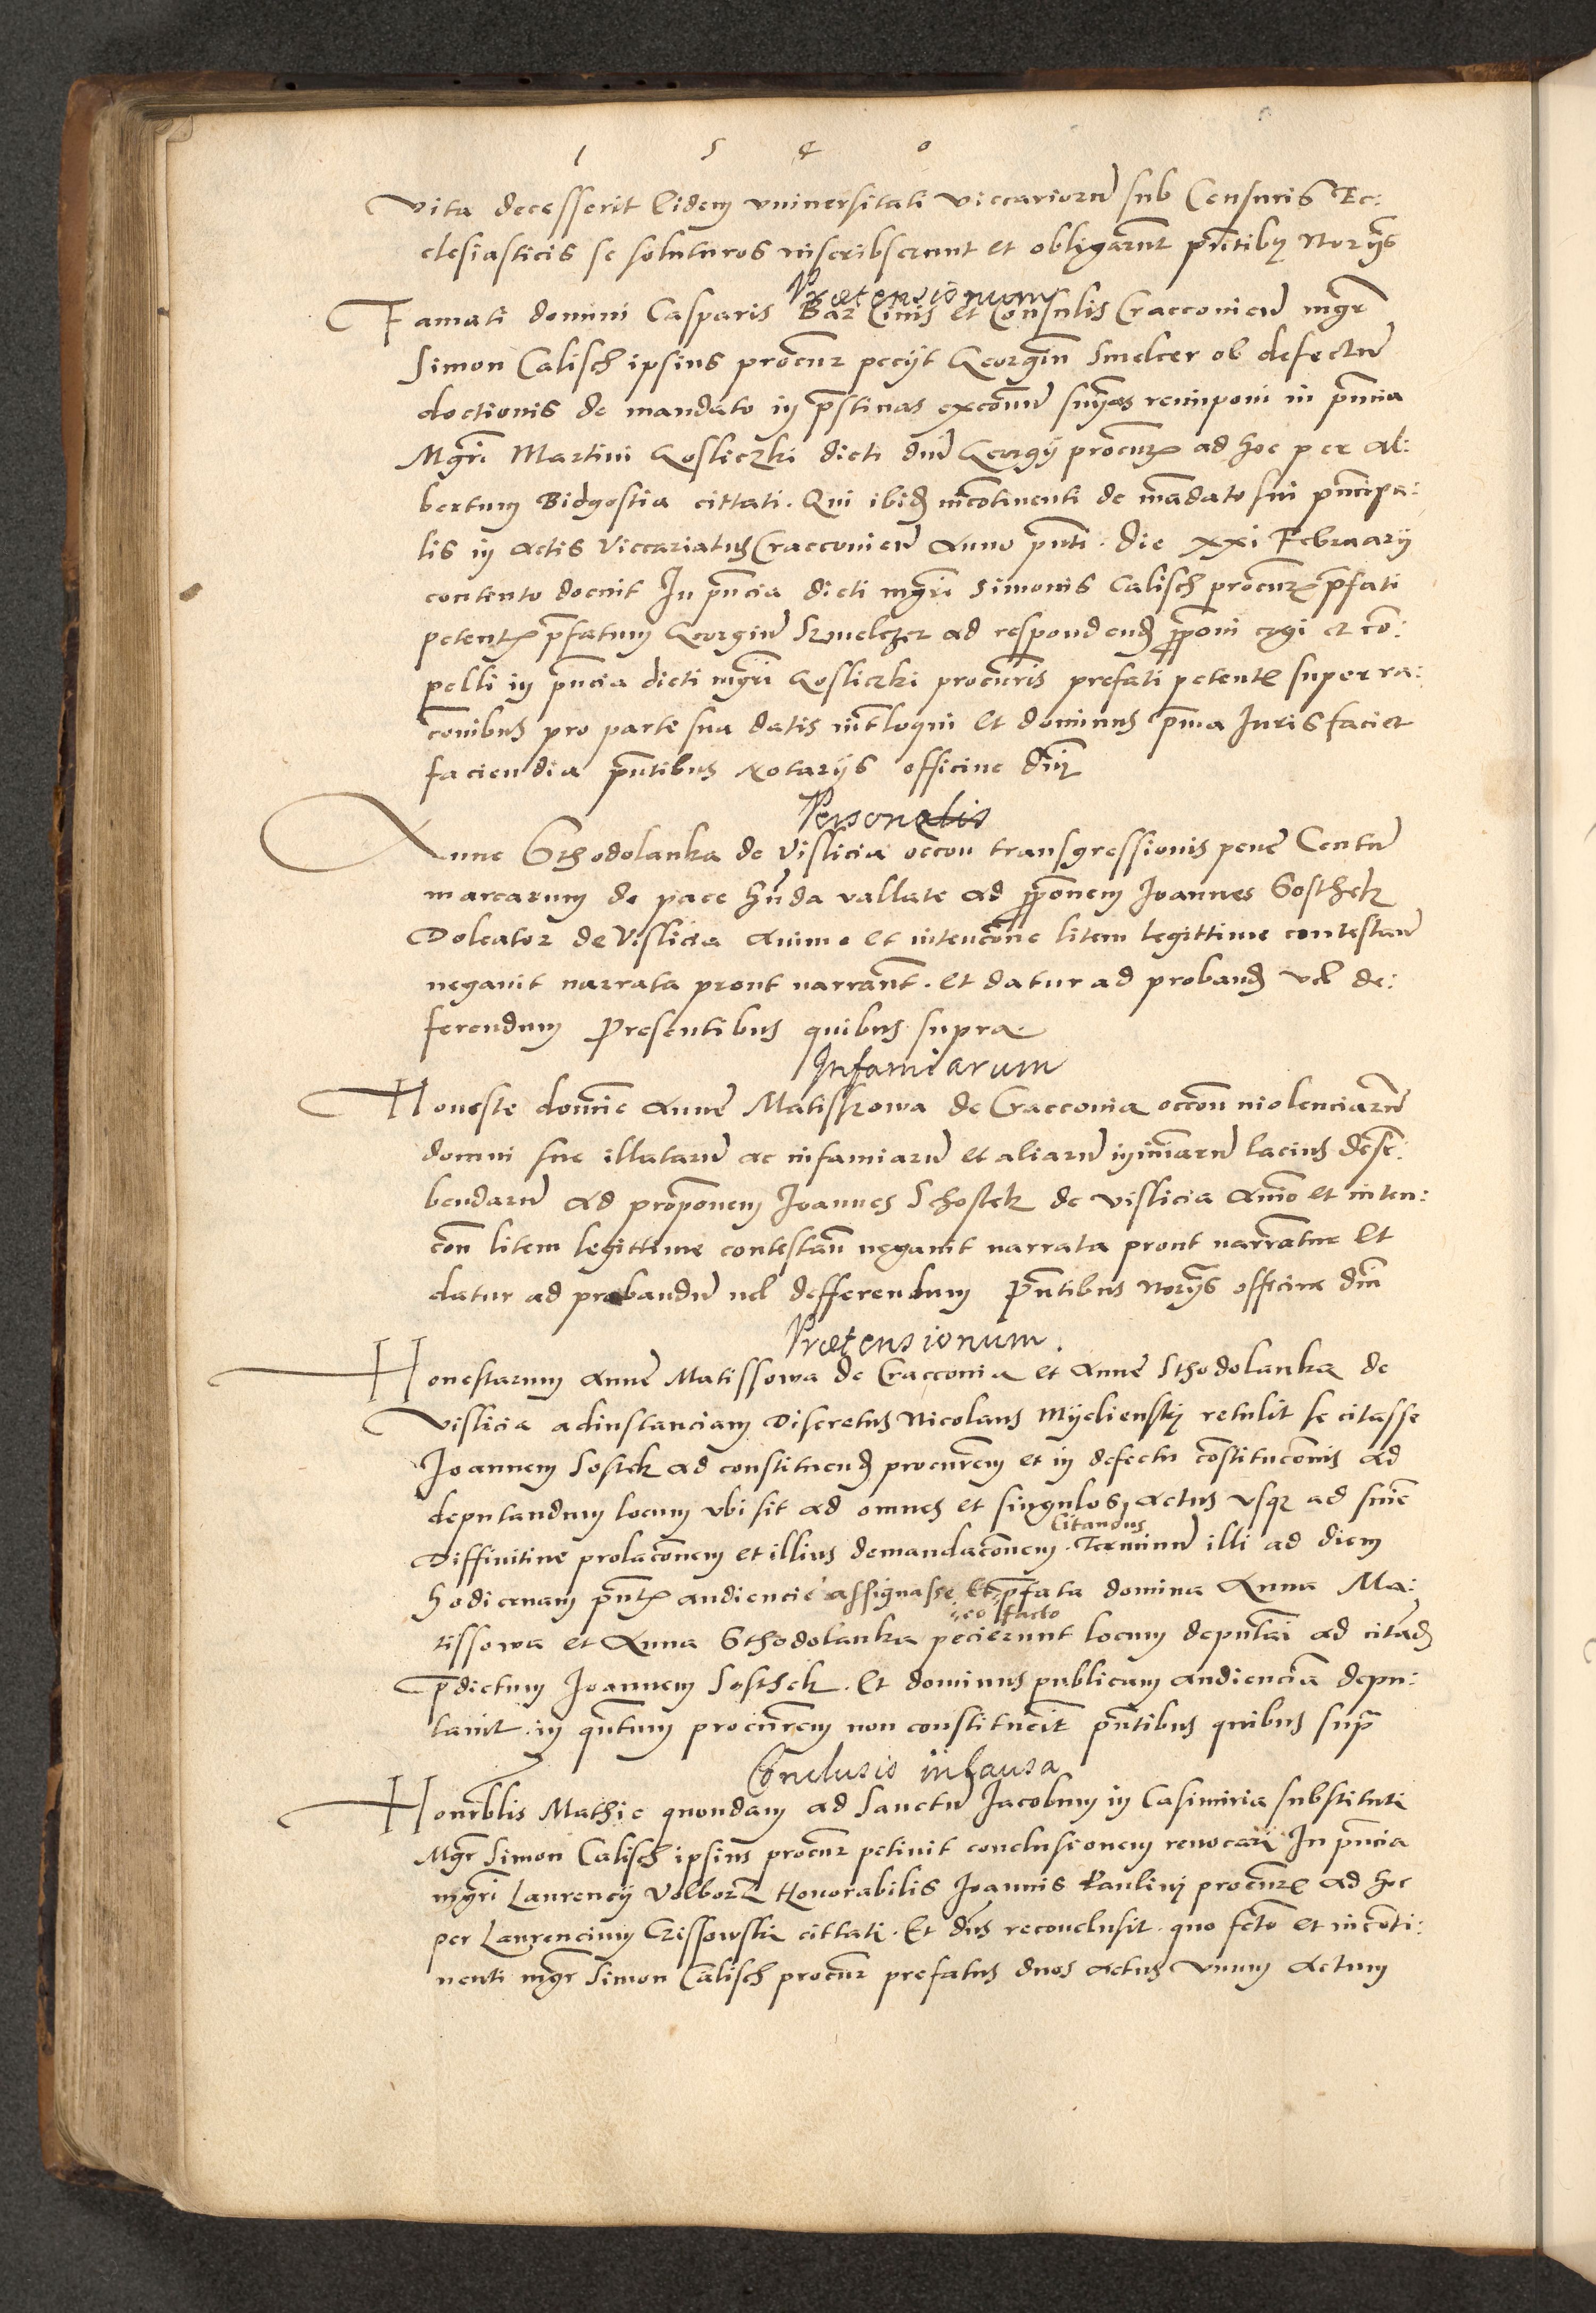 1 5 4 0
Vita decesserit Eidem vniuersitati viccariorū sub Censuris Ec:
clesiasticis se soluturos inscribserunt et obligarunt pn̄tibꝫ Norijs
Prætensionum
Famati domini Casparis Bar Ciuis et Consulis Cracconien̄ mgr̄
Simon Calisch ipsius procur̄ pecijt Georgiū Smelcer ob defectū
doctionis de mandato in pristinas excōmū sn̄ias reimponi in pn̄cia
Mgr̄i Martini Gosliczki dicti dn̄i Georgij procur̄ ad hoc per Al:
bertum Bidgostia cittati. Qui ibid̄ incōtinenti de mādato sui principa:
lis in actis Viccariatus Cracconien̄ Anno pn̄ti. die xxi February
contento docuit In pn̄cia dicti mgr̄i Simonis Calisch procur̄ p̄fati
petent̄ p̄fatum Georgiū Szmelczer ad respondend̄ ꝓp̄oni cogi et cō:
pelli in pn̄cia dicti mgr̄i Gosliczki procur̄is prefati petent̄ super ra:
cōnibus pro parte sua datis int̄loqui Et dominus p̄mia Iuris faciet
faciendia pn̄tibus Notarijs officine dn̄i
Personalis
Anne Sthodolanka de Vislicia occōn transgressionis pene Centū
marcarum de pace hn̄da vallate ad ꝓp̄onem Ioannes Sosthek
Doleator de Vislicia animo et intencōne litem legittime contestan̄
negauit narrata prout narrant̄. Et datur ad proband̄ vel de:
ferendum Presentibus quibus supra
Infamiarum
Honeste domīe Anne Matiskowa de Cracconia occōn violenciarū
domui sue illatarū ac infamiarū et aliarū iniuriarū lacius descri:
bendarū ad propōnem Ioannes Schostek de Vislicia Aīo et inten:
cōn litem legittime contestan̄ negauit narrata prout narrātur Et
datur ad probandū uel defferendum Pn̄tibus Norijs officine dn̄i
Prætensionum.
Honestarum Anne Matissowa de Cracconia et Anne Sthodolanka de
Vislicia adinstanciam Discretus Nicolaus Myclienskj retulit se citasse
Ioannem Sostek ad constituend̄ procurem̄ et in defectu cōstitucōnis ad
deputandum locum vbi sit ad omnes et singulos actus vsqꝫ ad sn̄ie
Citandus
Diffinitiue prolacōnem et illius demandacōnem. Terminū illi ad diem
hodiernam pn̄t̄ audiencie assignasse. Et p̄fata domina Anna Ma:
eo facto
tissowa et Anna Sthodolanka pecierunt locum deputari ad citād̄
p̄dictum Ioannem Sosthek. Et dominus publicam audienciā depu:
tauit. in qn̄tum procurem̄ non constituerit pn̄tibus quibus supra
Conclusio in Causa
Honorablis Mathie quondam ad Sanctū Iacobum in Casimiria substituti
Mgr̄ Simon Calisch ipsius procur̄ petiuit conclusionem reuocari In pn̄cia
mgr̄i Laurencij Volborz Honorabilis Ioannis Paulinj procur̄ ad hoc
per Laurencium Czissowski cittati. Et dn̄s reconclusit. quo fctō et incōti:
nenti mgr̄ Simon Calisch procur̄ prefatus duos actus Vnum actum